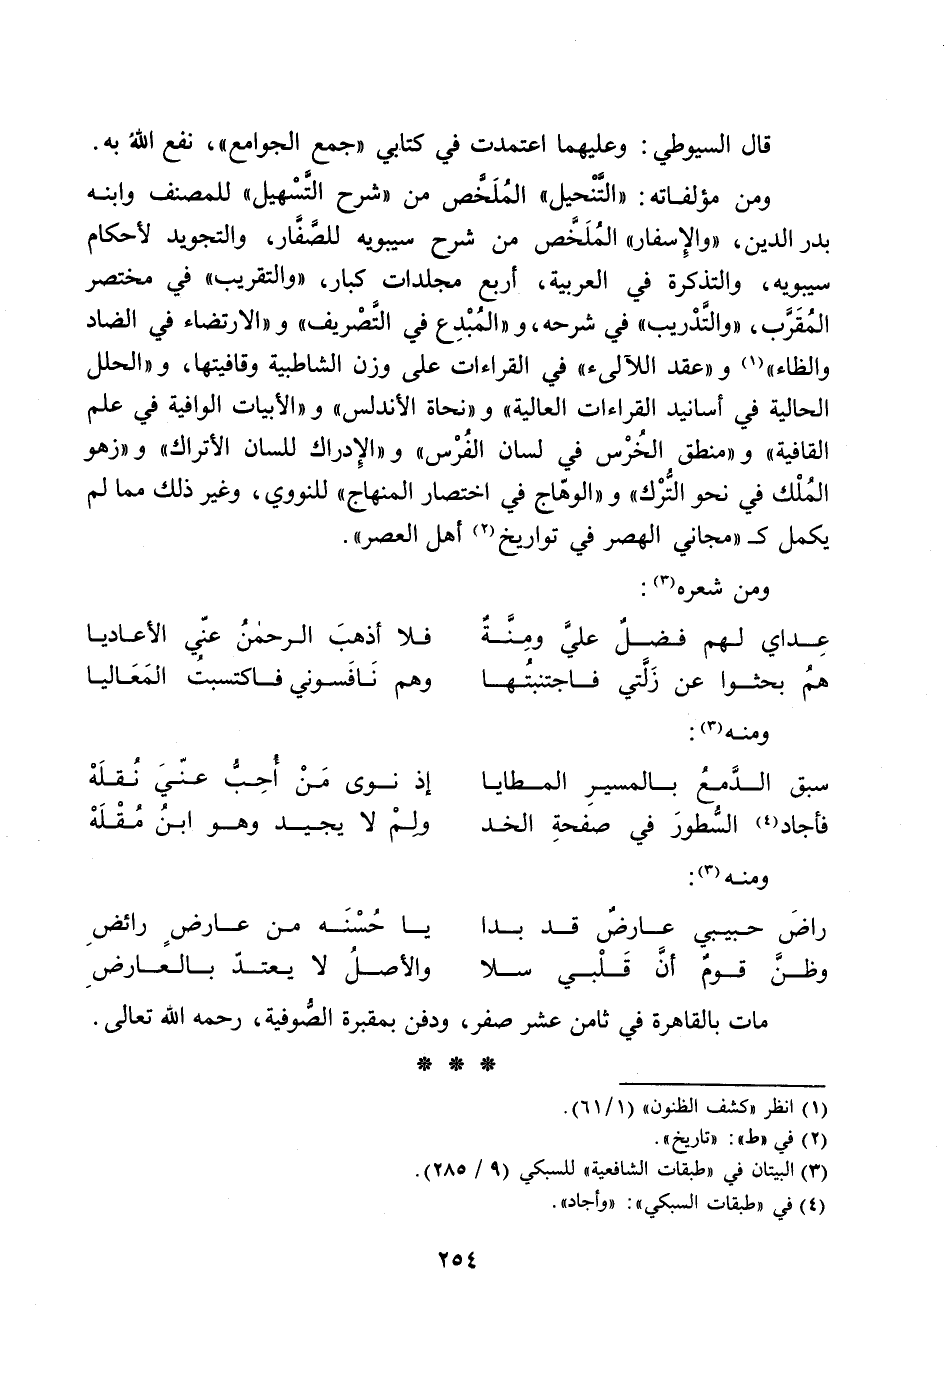 قال السيوطي: وعليهما اعتمدت في كتابي «جمع الجوامع»، نفع اللهُ به.
ومن مؤلفاته: «التَّنْحيل» المُلَخَّص من «شرح التَّسْهيل» للمصنف وابنه
بدر الدين، «والإسفار» المُلَخَّص من شرح سيبويه للصَّفَّار، والتجويد لأحكام
سيبويه، والتذكرة في العربية، أربع مجلدات كبار، «والتقريب» في مختصر
المُقَرَّب، «والتَّدْريب» في شرحه، و «المُبْدِع في التَّصْريف» و «الارتضاء في الضاد
والظاء»(١) و «عقد اللآلىء» في القراءات على وزن الشاطبية وقافيتها، و «الحلل
الحالية في أسانيد القراءات العالية» و «نحاة الأندلس» و «الأبيات الوافية في علم
القافية» و «منطق الخُرْس في لسان الفُرْس» و «الإدراك للسان الأتراك» و «زهو
المُلْك في نحو التُّرْك» و «الوهّاج في اختصار المنهاج» للنووي، وغير ذلك مما لم
يكمل كـ «مجاني الهصر في تواريخ(٢) أهل العصر».
ومن شعره(٣):
عِداي لهم فضلٌ عليَّ ومِنَّةٌ فلا أذهبَ الرحمٰنُ عنّي الأعاديا
همُ بحثوا عن زَلَّتي فاجتنبتُها وهم نَافَسوني فاكتسبتُ المَعَاليا
ومنه(٣):
سبق الدَّمعُ بالمسيرِ المطايا إذ نوى مَنْ أُحِبُّ عنّيَ نُقلَهْ
فأجاد(٤) السُّطورَ في صفحةِ الخد ولِمْ لا يجيد وهو ابنُ مُقْلَهْ
ومنه(٣):
راضَ حبيبي عارضٌ قد بدا يا حُسْنَه من عارضٍ رائضِ
وظنَّ قومٌ أنَّ قَلْبي سلا والأصلُ لا يعتدّ بالعارضِ
مات بالقاهرة في ثامن عشر صفر، ودفن بمقبرة الصُّوفية، رحمه الله تعالى.
* * *
(١) انظر «كشف الظنون» (٦١/١).
(٢) في «ط»: «تاريخ».
(٣) البيتان في «طبقات الشافعية» للسبكي (٩ / ٢٨٥).
(٤) في «طبقات السبكي»: «وأجاد».
٢٥٤